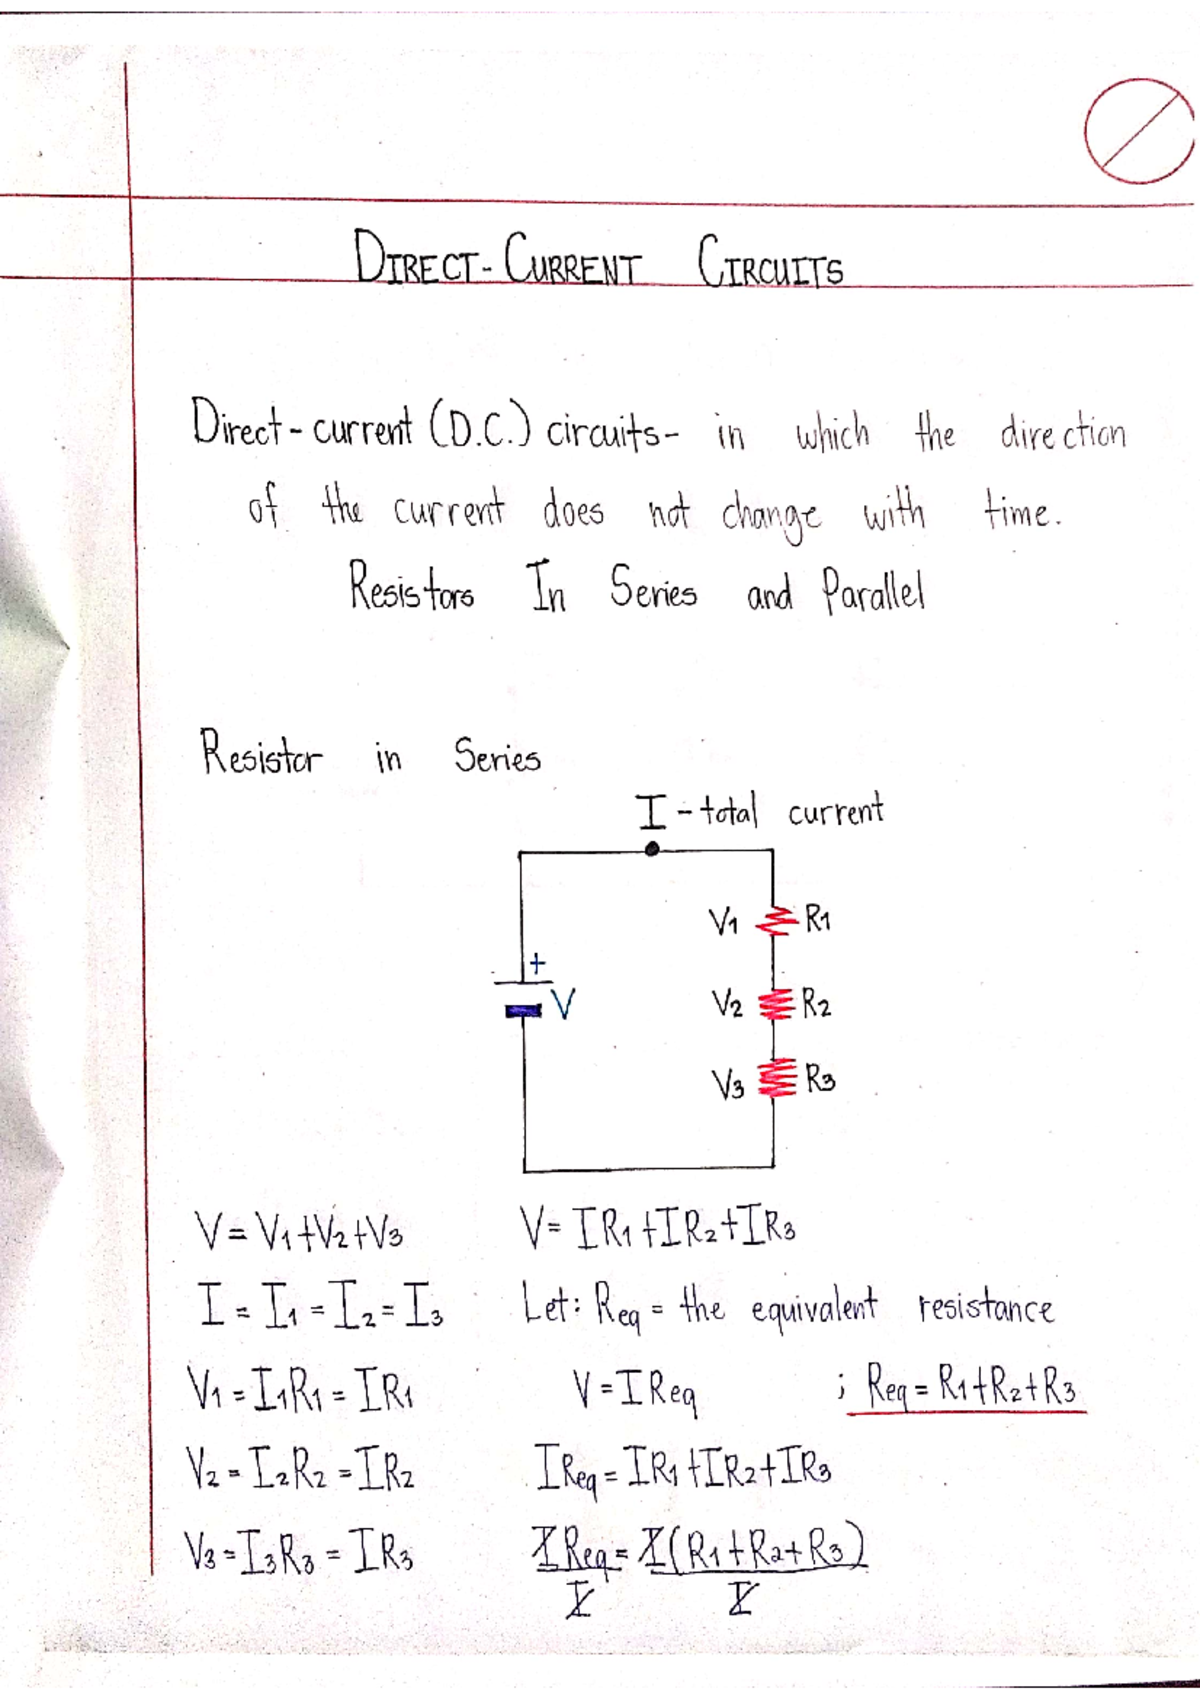 DIRECT-CURRENT CIRCUITS
Direct-current (D.C.) circuits- in which the direction
of the current does not change with time.
Resistors In Series and Parallel
Resistor in Series
I - total current
V1 R1
+
V
V2 R2
V3 R3
V = V1+V2+V3
I = I1 = I2 = I3
V1 = I1R1 = IR1
V2 = I2R2 = IR2
V3 = I3R3 = IR3
V = IR1+IR2+IR3
Let: Req = the equivalent resistance
V = IReq ; Req = R1+R2+R3
IReq = IR1+IR2+IR3
IReq = I(R1+R2+R3)
I I